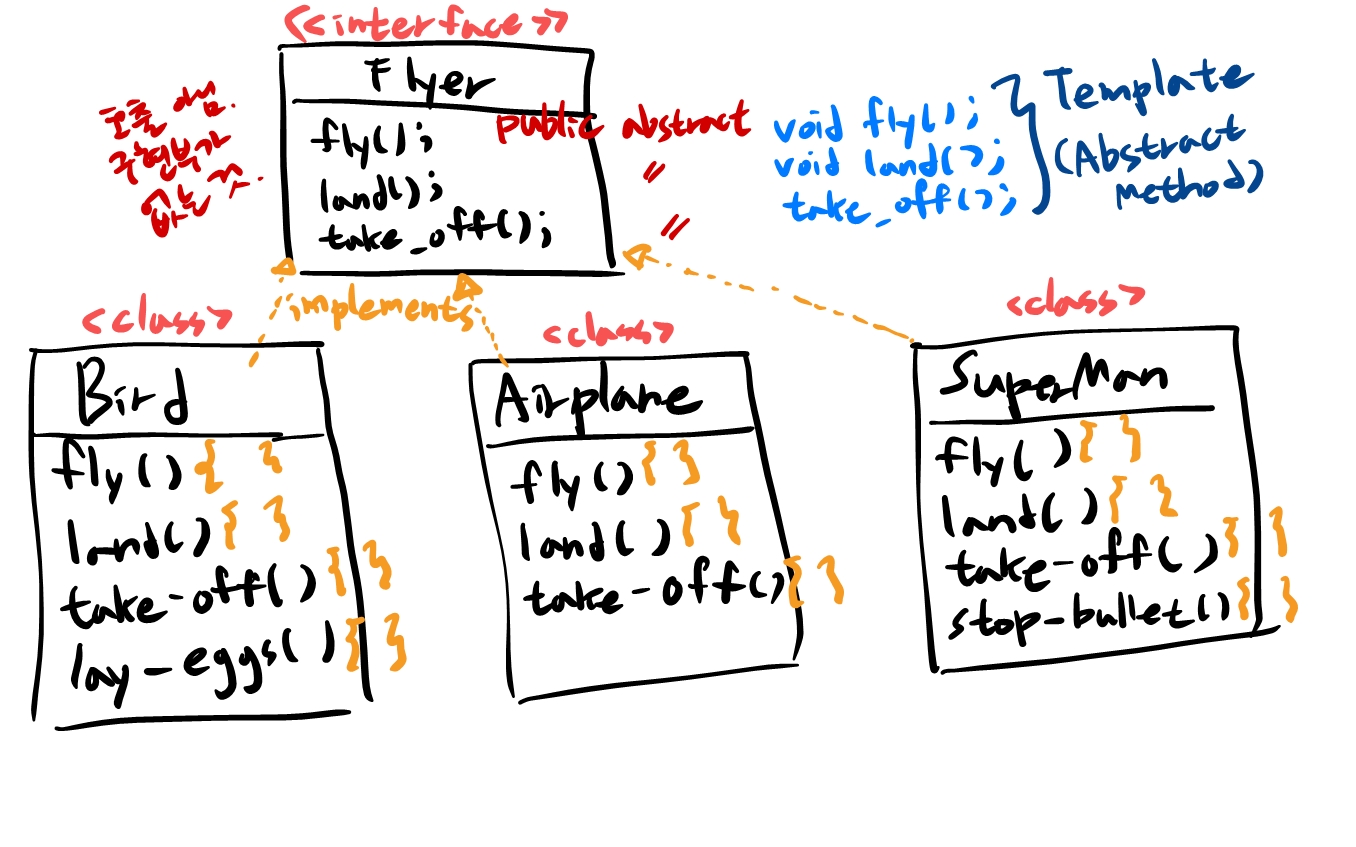 <<interface>>
Flyer
fly();
land();
take_off();
구현부가
public abstract
〃
〃
void fly();
void land();
take_off();
Template
(Abstract
method)
implements
<class>
Bird
fly() { }
land() { }
take-off() { }
lay-eggs() { }
<class>
Airplane
fly() { }
land() { }
take-off() { }
<class>
SuperMan
fly() { }
land() { }
take-off() { }
stop-bullet() { }